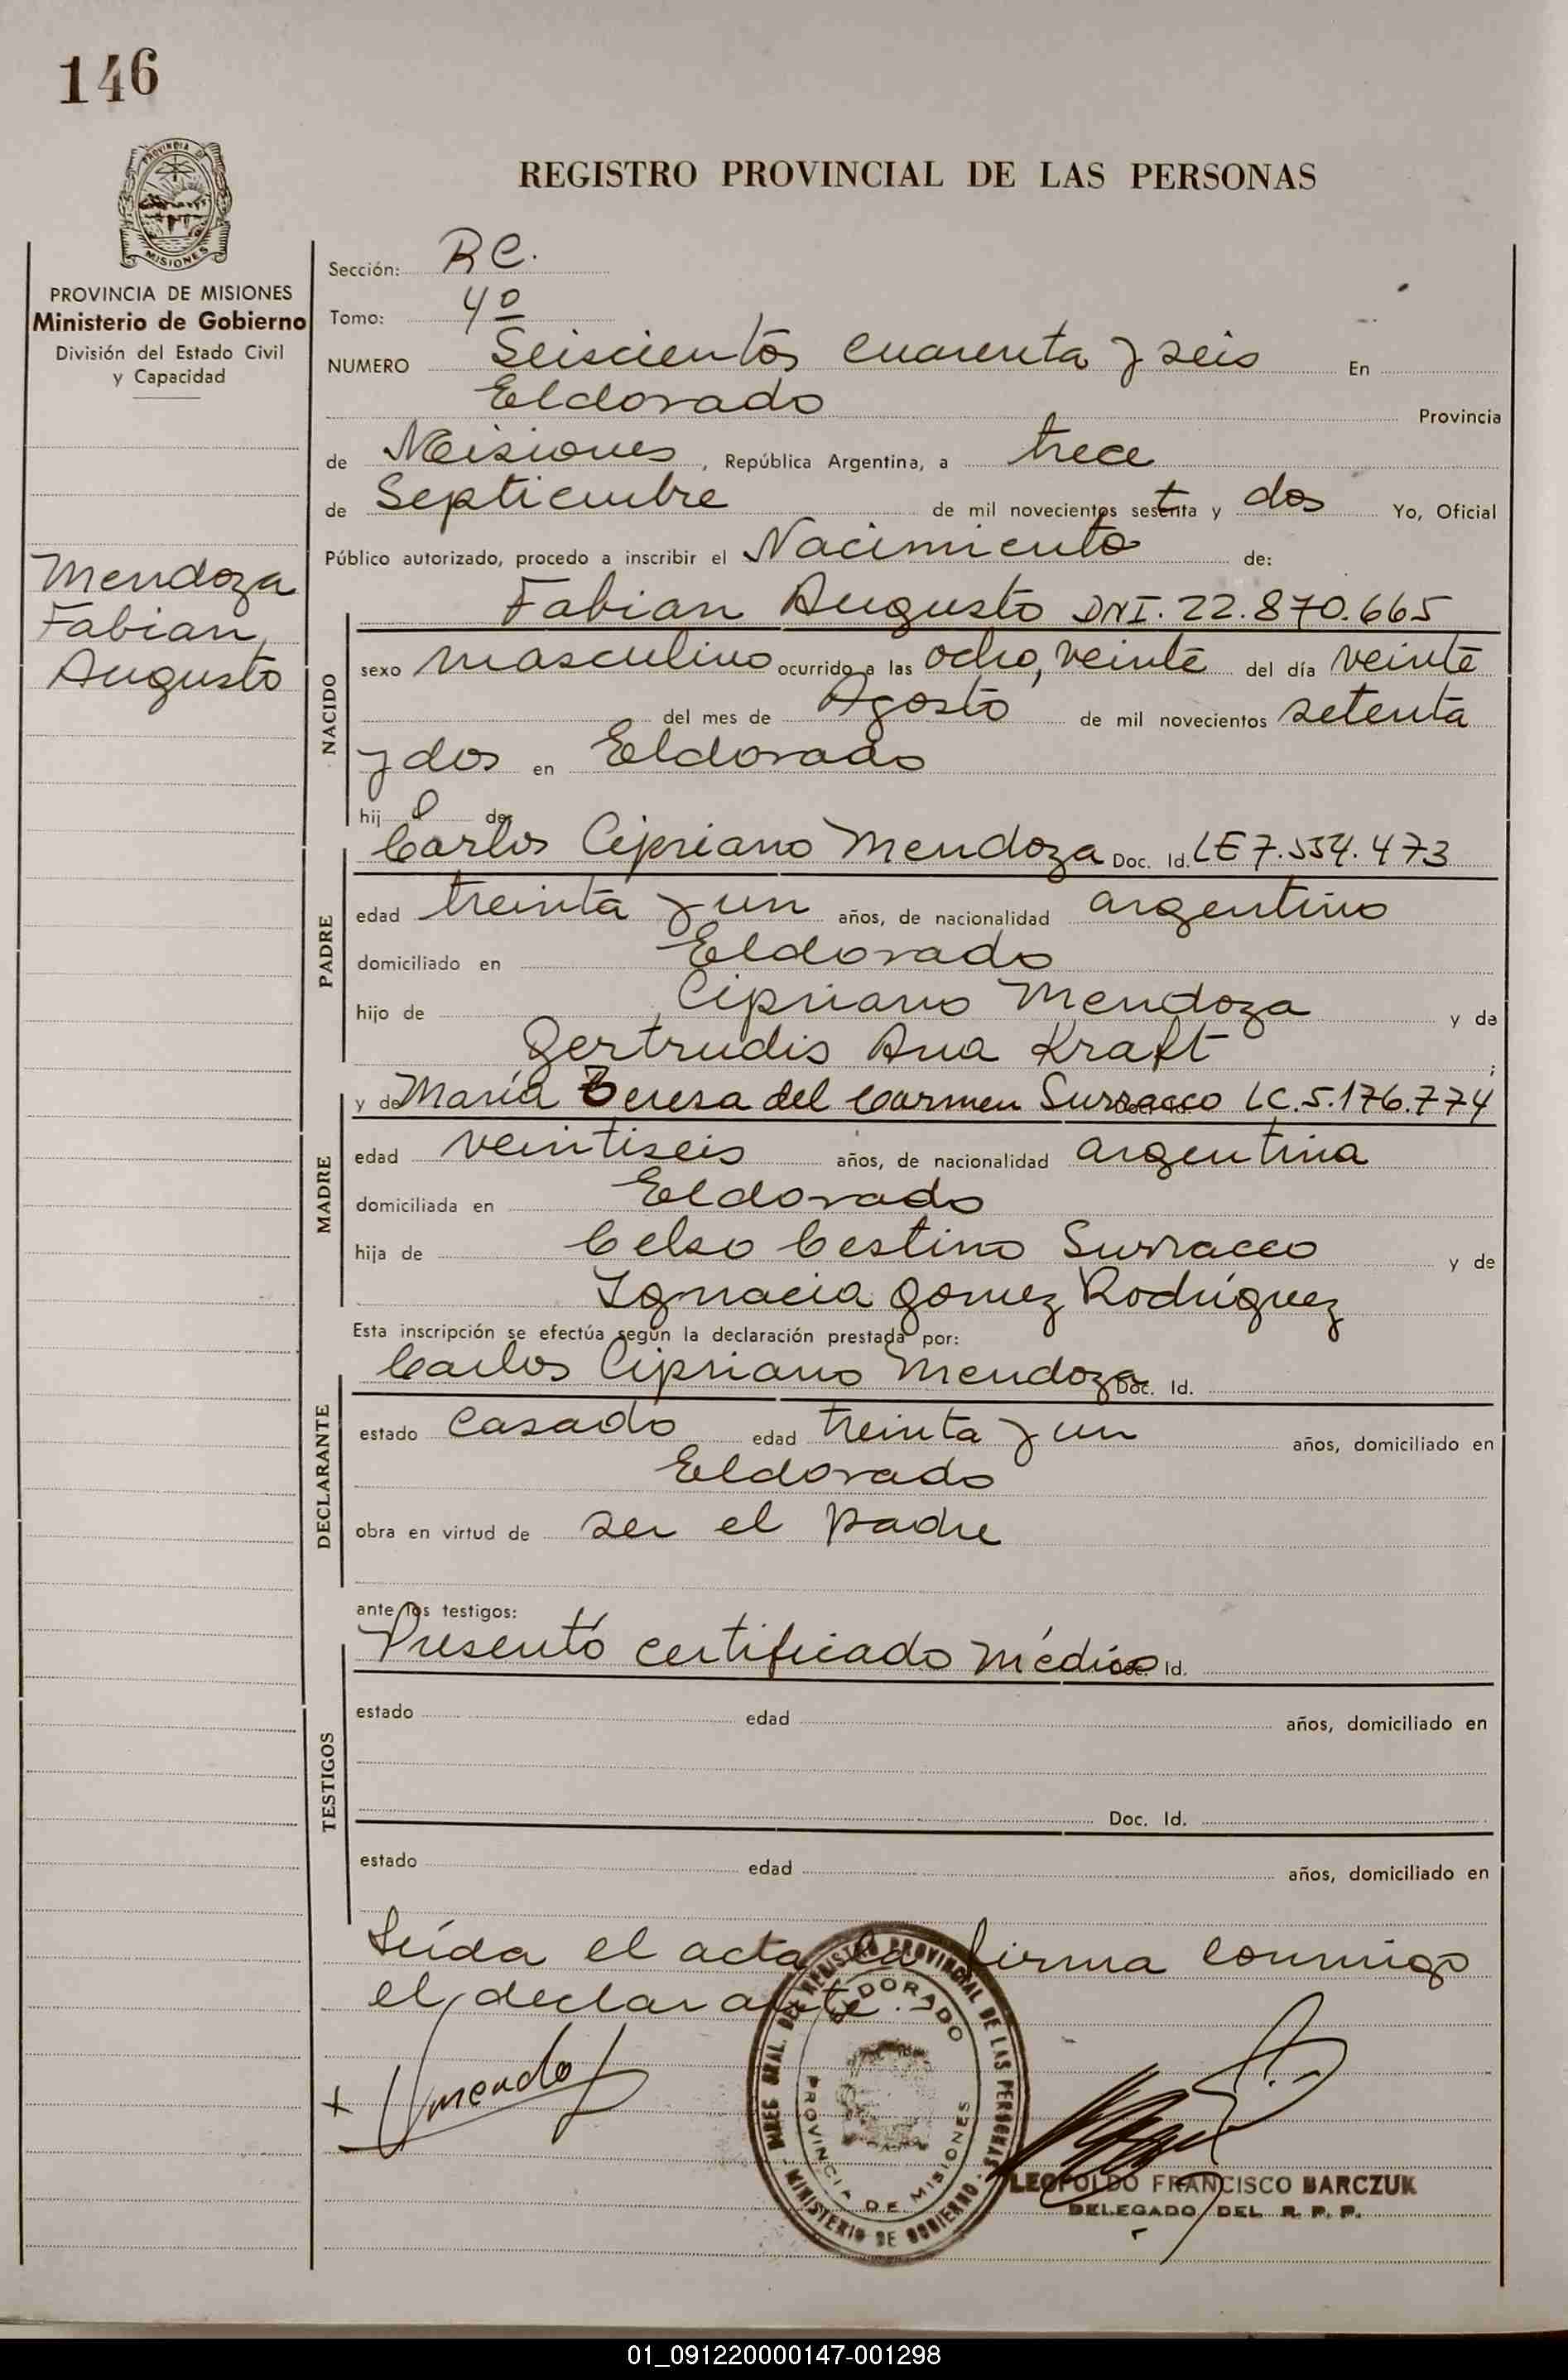 146
PROVINCIA DE
MISIONES
REGISTRO PROVINCIAL DE LAS PERSONAS
PROVINCIA DE MISIONES
Ministerio de Gobierno
División del Estado Civil
y Capacidad
Mendoza
Fabian
Augusto
Sección: R C.
Tomo: 4º
NUMERO Seiscientos cuarenta y seis En
Eldorado Provincia
de Misiones, República Argentina, a trece
de Septiembre de mil novecientos setenta y dos Yo, Oficial
Público autorizado, procedo a inscribir el Nacimiento de:
NACIDO
Fabian Augusto DNI. 22.870.665
sexo masculino ocurrido a las ocho, veinte del día veinte
del mes de Agosto de mil novecientos setenta
y dos en Eldorado
hij o de
PADRE
Carlos Cipriano Mendoza Doc. Id. LE 7.554.473
edad treinta y un años, de nacionalidad argentino
domiciliado en Eldorado
hijo de Cipriano Mendoza y de
Gertrudis Ana Kraft ;
MADRE
y de María Teresa del Carmen Surracco LC. 5.176.774
edad veintiseis años, de nacionalidad argentina
domiciliada en Eldorado
hija de Celso Cestino Surracco y de
Ignacia Gomez Rodríguez
Esta inscripción se efectúa según la declaración prestada por:
DECLARANTE
Carlos Cipriano Mendoza Doc. Id.
estado casado edad treinta y un años, domiciliado en
Eldorado
obra en virtud de ser el padre
ante los testigos:
TESTIGOS
Presentó certificado médico Id.
estado edad años, domiciliado en
Doc. Id.
estado edad años, domiciliado en
Leída el acta la firma conmigo
el declarante.
DIREC. GRAL. DEL REGISTRO PROVINCIAL DE LAS PERSONAS - MINISTERIO DE GOBIERNO -
ELDORADO
PROVINCIA DE MISIONES
LEOPOLDO FRANCISCO BARCZUK
DELEGADO DEL R. P. P.
01_091220000147-001298